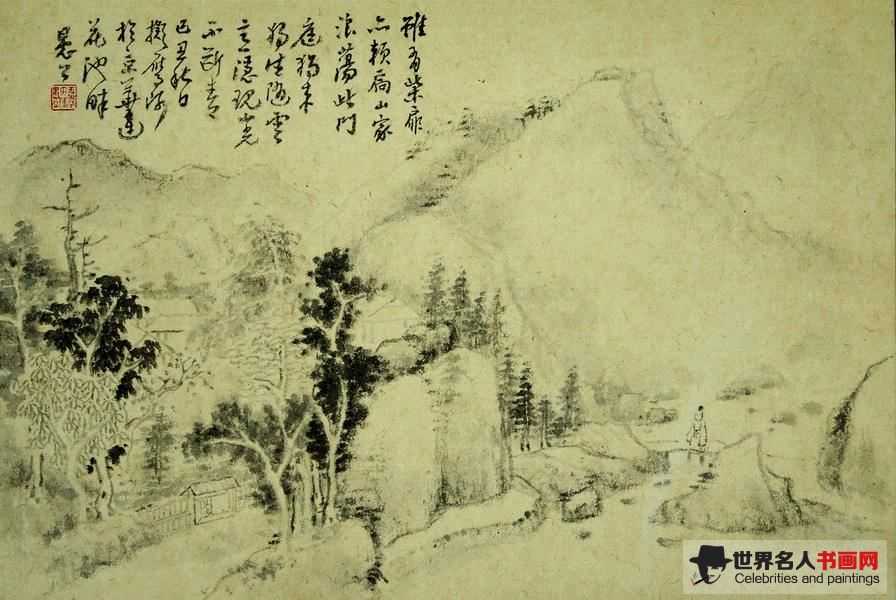 雖有柴扉
亦頼扃山家
浪蕩此門
庭獨來
獨往隨雲
意隱現光
不斷青
己丑秋日
擬
於京華蓮
花池畔
世界名人书画网
Celebrities and paintings